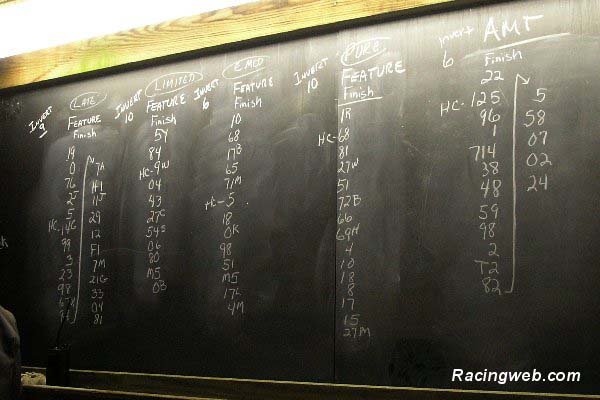 INVERT 9
LATE
FEATURE
Finish
19
0
76
5
HC-14C
99
3
23
98
7A
H1
11J
29
12
F1
7M
21G
33
04
81
INVERT 10
LIMITED
FEATURE
Finish
54
84
HC-9W
04
43
27C
54S
06
80
M5
03
INVERT 6
E MOD
FEATURE
Finish
10
68
17B
65
71M
HC-5
18
0K
98
51
M5
17C
4M
INVERT 10
PURE
FEATURE
Finish
1R
HC-68
81
27W
57
72B
66
69H
4
10
18
8
17
15
27M
invert 6
AMT
Finish
22
HC-125
96
1
714
38
48
59
98
2
T2
82
5
58
07
02
24
Racingweb.com